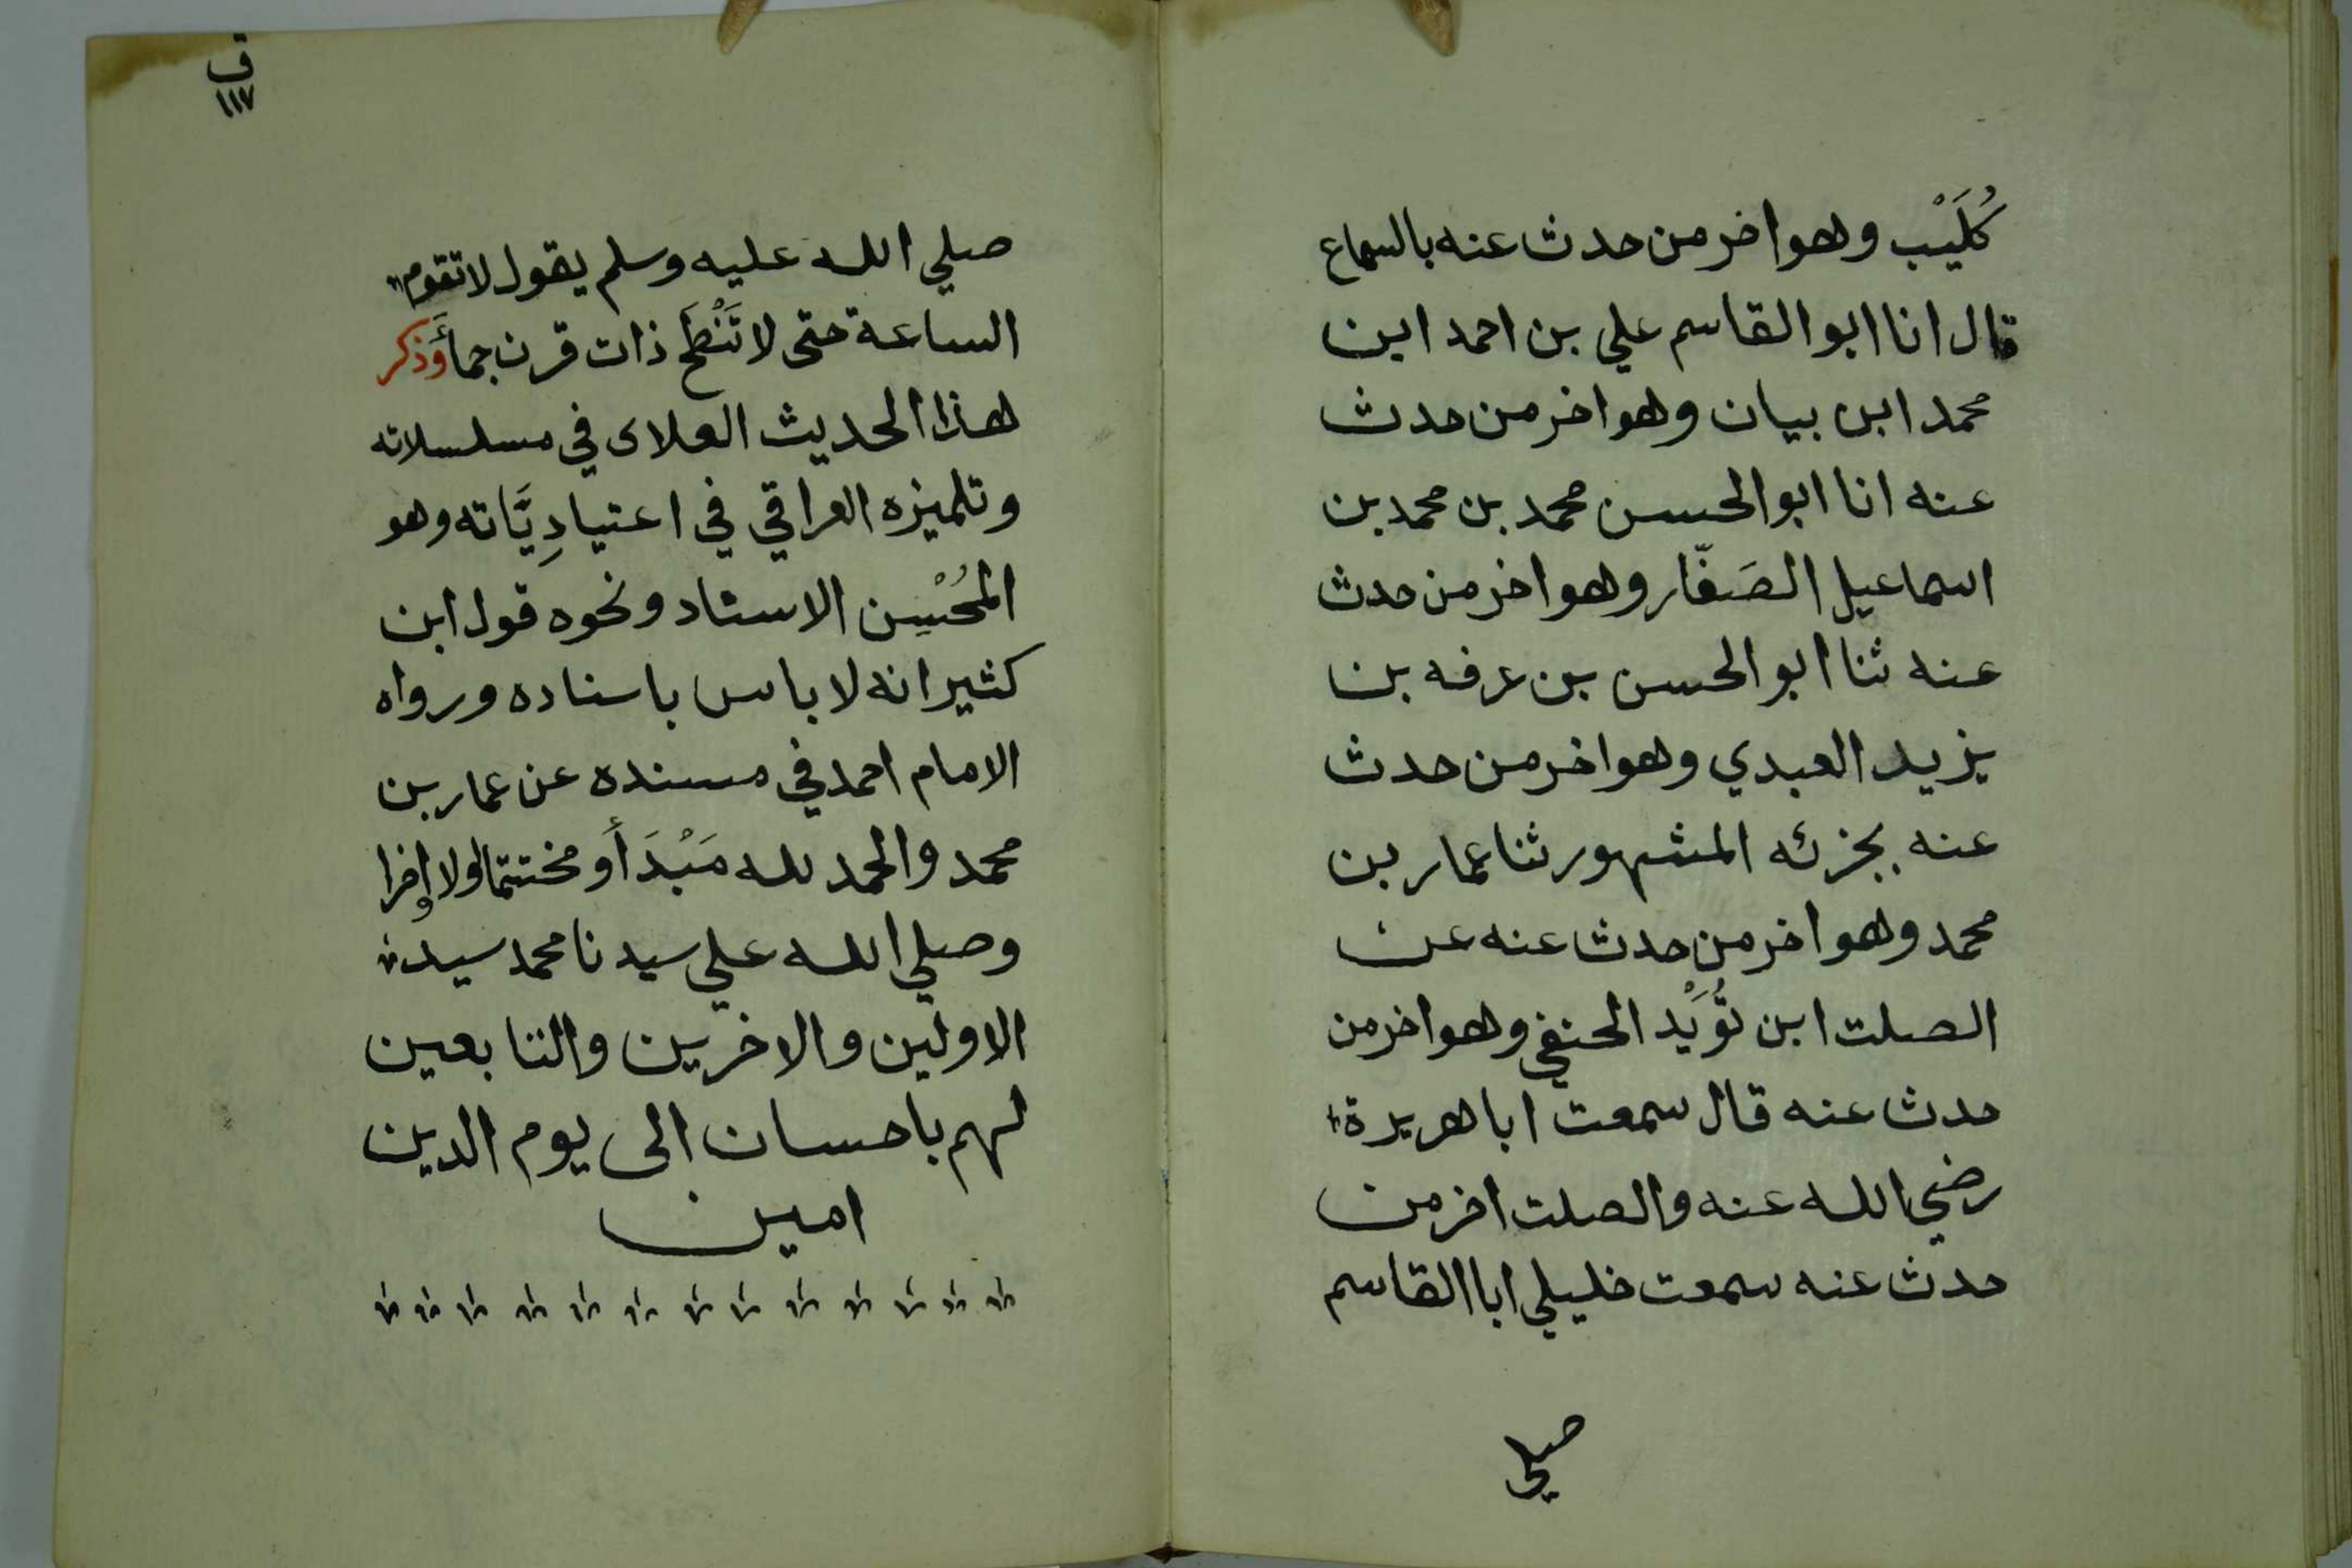 كُلَيْب وهو اخر من حدث عنه بالسماع
قال انا ابو القاسم علي بن احمد ابن
محمد ابن بيان وهو اخر من حدث
عنه انا ابو الحسن محمد بن محمد بن
اسماعيل الصَفّار وهو اخر من حدث
عنه ثنا ابو الحسن بن عرفه بن
يزيد العبدي وهو اخر من حدث
عنه بجزئه المشهور ثنا عمار بن
محمد وهو اخر من حدث عنه عن
الصلت ابن تُوَيْد الحنفي وهو اخر من
حدث عنه قال سمعت ابا هريرة
رضي الله عنه والصلت اخر من
حدث عنه سمعت خليلي ابا القاسم
صلي
ق
١١٧
صلي الله عليه وسلم يقول لا تقوم
الساعة حتى لا تَنْطَح ذات قرن جمأ وذكر
هذا الحديث العلاى في مسلسلاته
وتلميزه العراقي في اعتيادِيَّاته وهو
المُحْسِن الاستاد ونحوه قول ابن
كثير انه لا باس باسناده ورواه
الامام احمد في مسنده عن عمار بن
محمد والحمد لله مَبْدَأ و مختتما ولا
وصلي الله علي سيدنا محمد سيد
الاولين والاخرين والتابعين
لهم باحسان الى يوم الدين
امين